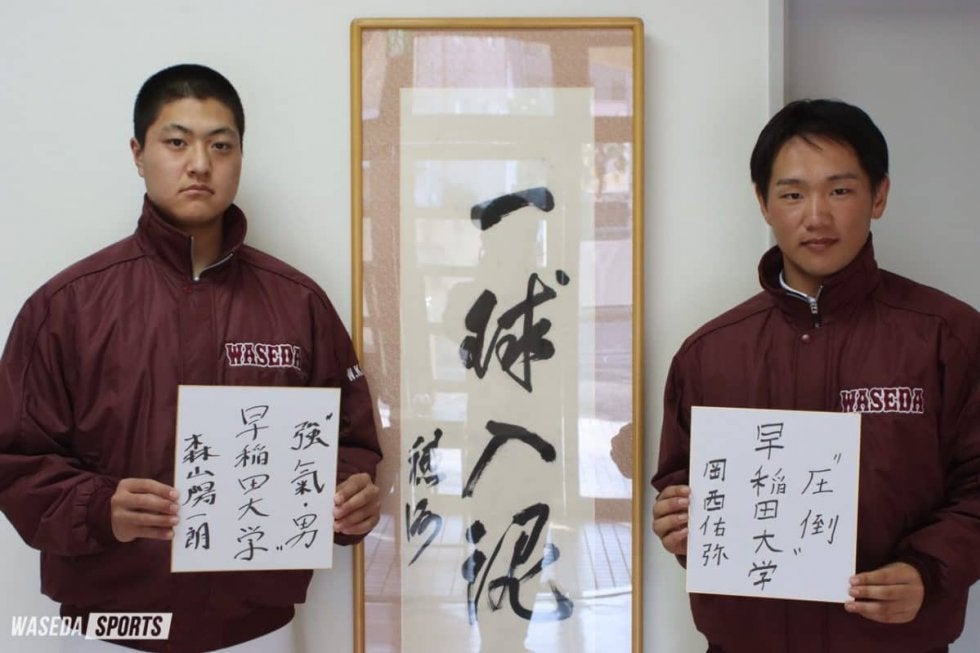 WASEDA
W.K
"強氣・男"
早稲田大学
森山陽一朗
一球入混
WASEDA
"圧倒"
早稲田大学
岡西佑弥
WASEDA SPORTS